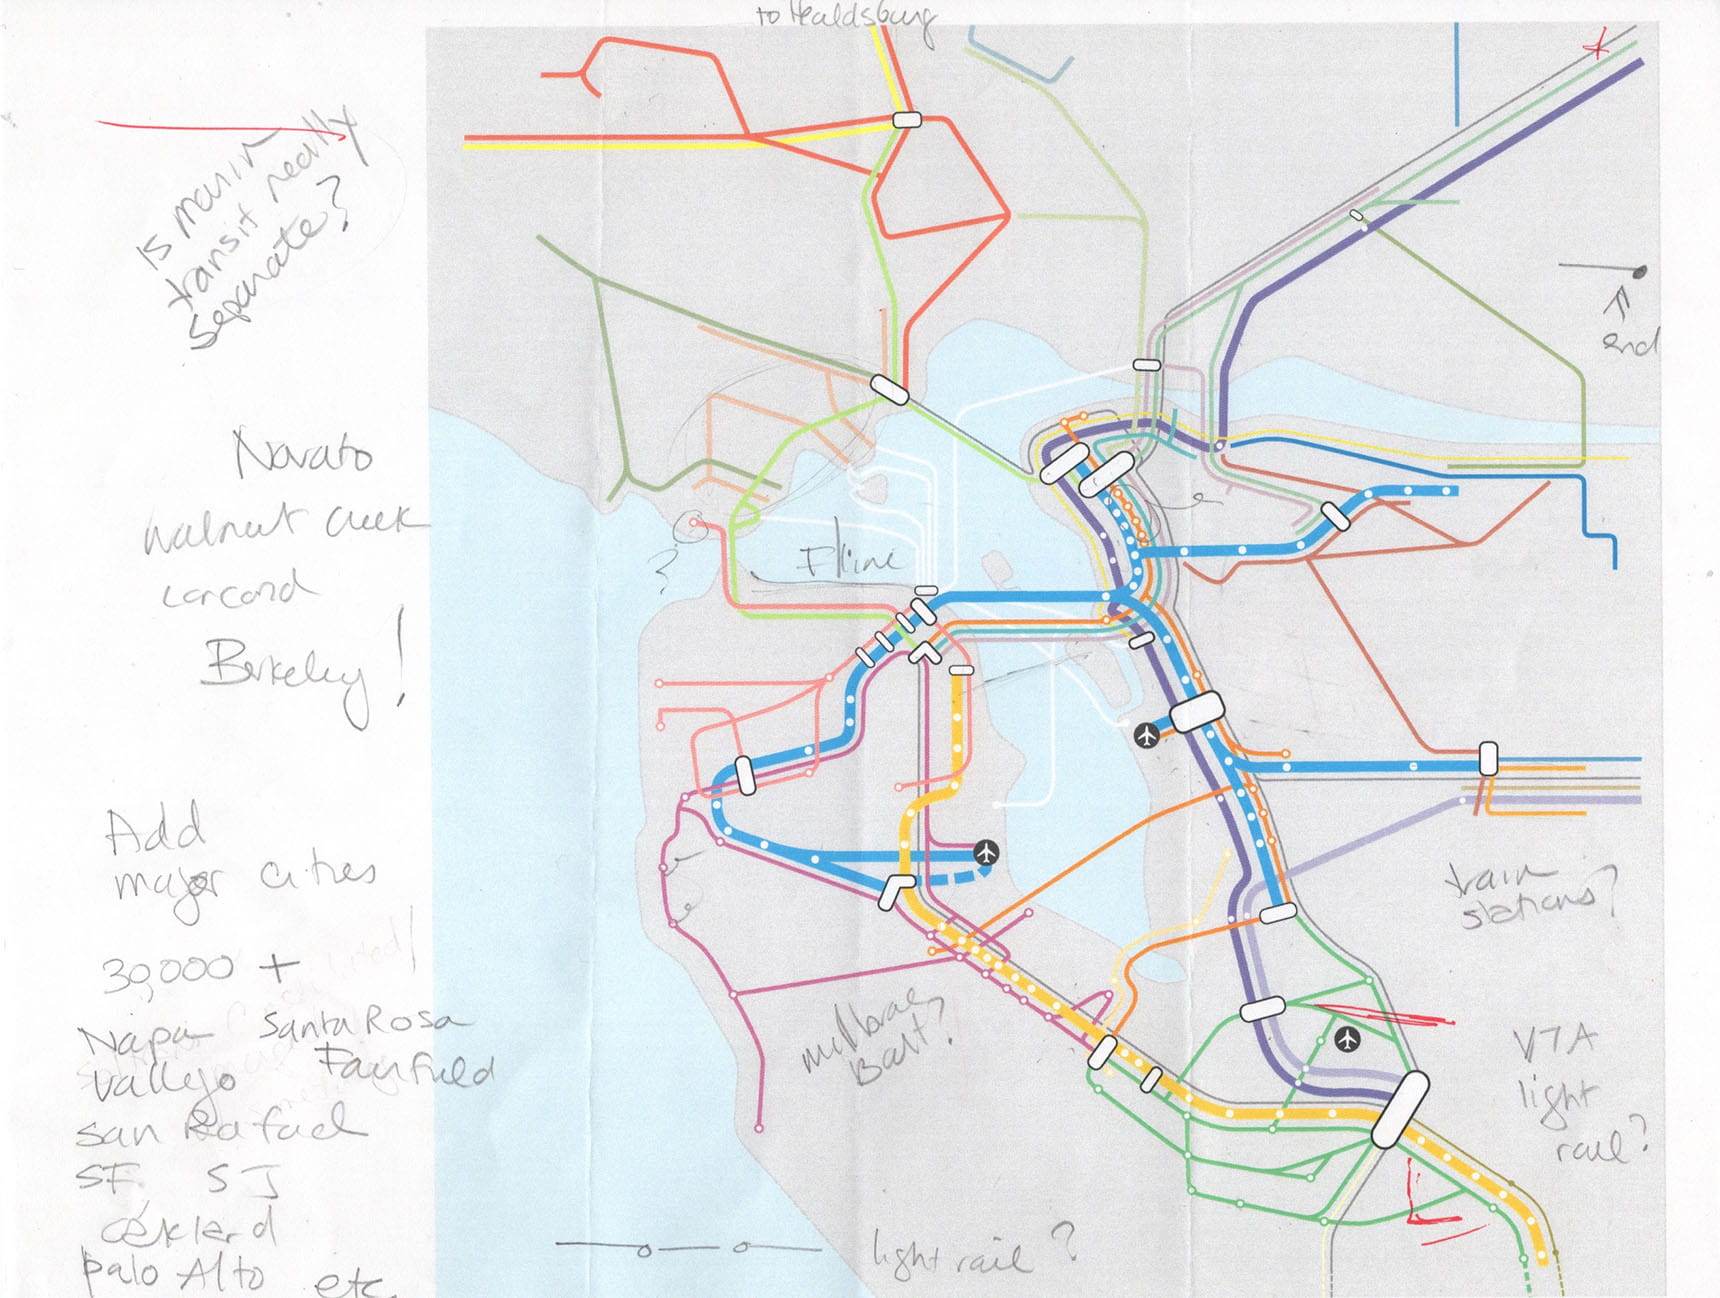 to Healdsburg
Is marin
transit really
separate?
end
Novato
walnut creek
concord
Berkeley!
F line
?
Add
major cities
30,000 +
Napa Santa Rosa
Vallejo Fairfield
san Rafael
SF SJ
oakland
palo Alto etc
millbrae
Bart?
train
stations?
VTA
light
rail?
light rail?